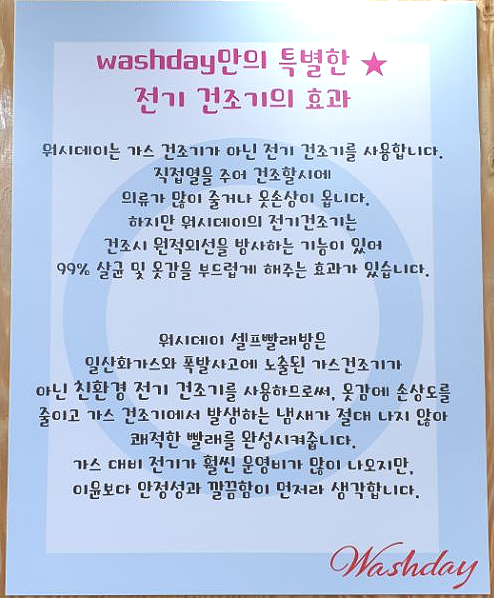 washday만의 특별한 ★
전기 건조기의 효과
워시데이는 가스 건조기가 아닌 전기 건조기를 사용합니다.
직접열을 주어 건조할시에
의류가 많이 줄거나 옷손상이 옵니다.
하지만 워시데이의 전기건조기는
건조시 원적외선을 방사하는 기능이 있어
99% 살균 및 옷감을 부드럽게 해주는 효과가 있습니다.
워시데이 셀프빨래방은
일산화가스와 폭발사고에 노출된 가스건조기가
아닌 친환경 전기 건조기를 사용하므로써, 옷감에 손상도를
줄이고 가스 건조기에서 발생하는 냄새가 절대 나지 않아
쾌적한 빨래를 완성시켜줍니다.
가스 대비 전기가 훨씬 운영비가 많이 나오지만,
이윤보다 안정성과 깔끔함이 먼저라 생각합니다.
Washday